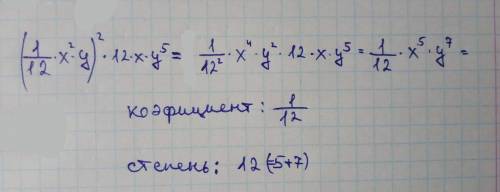 (1/12 · x² · y)² · 12 · x · y⁵ = 1/12² · x⁴ · y² · 12 · x · y⁵ = 1/12 · x⁵ · y⁷ =
коефициент : 1/12
степень : 12 (=5+7)